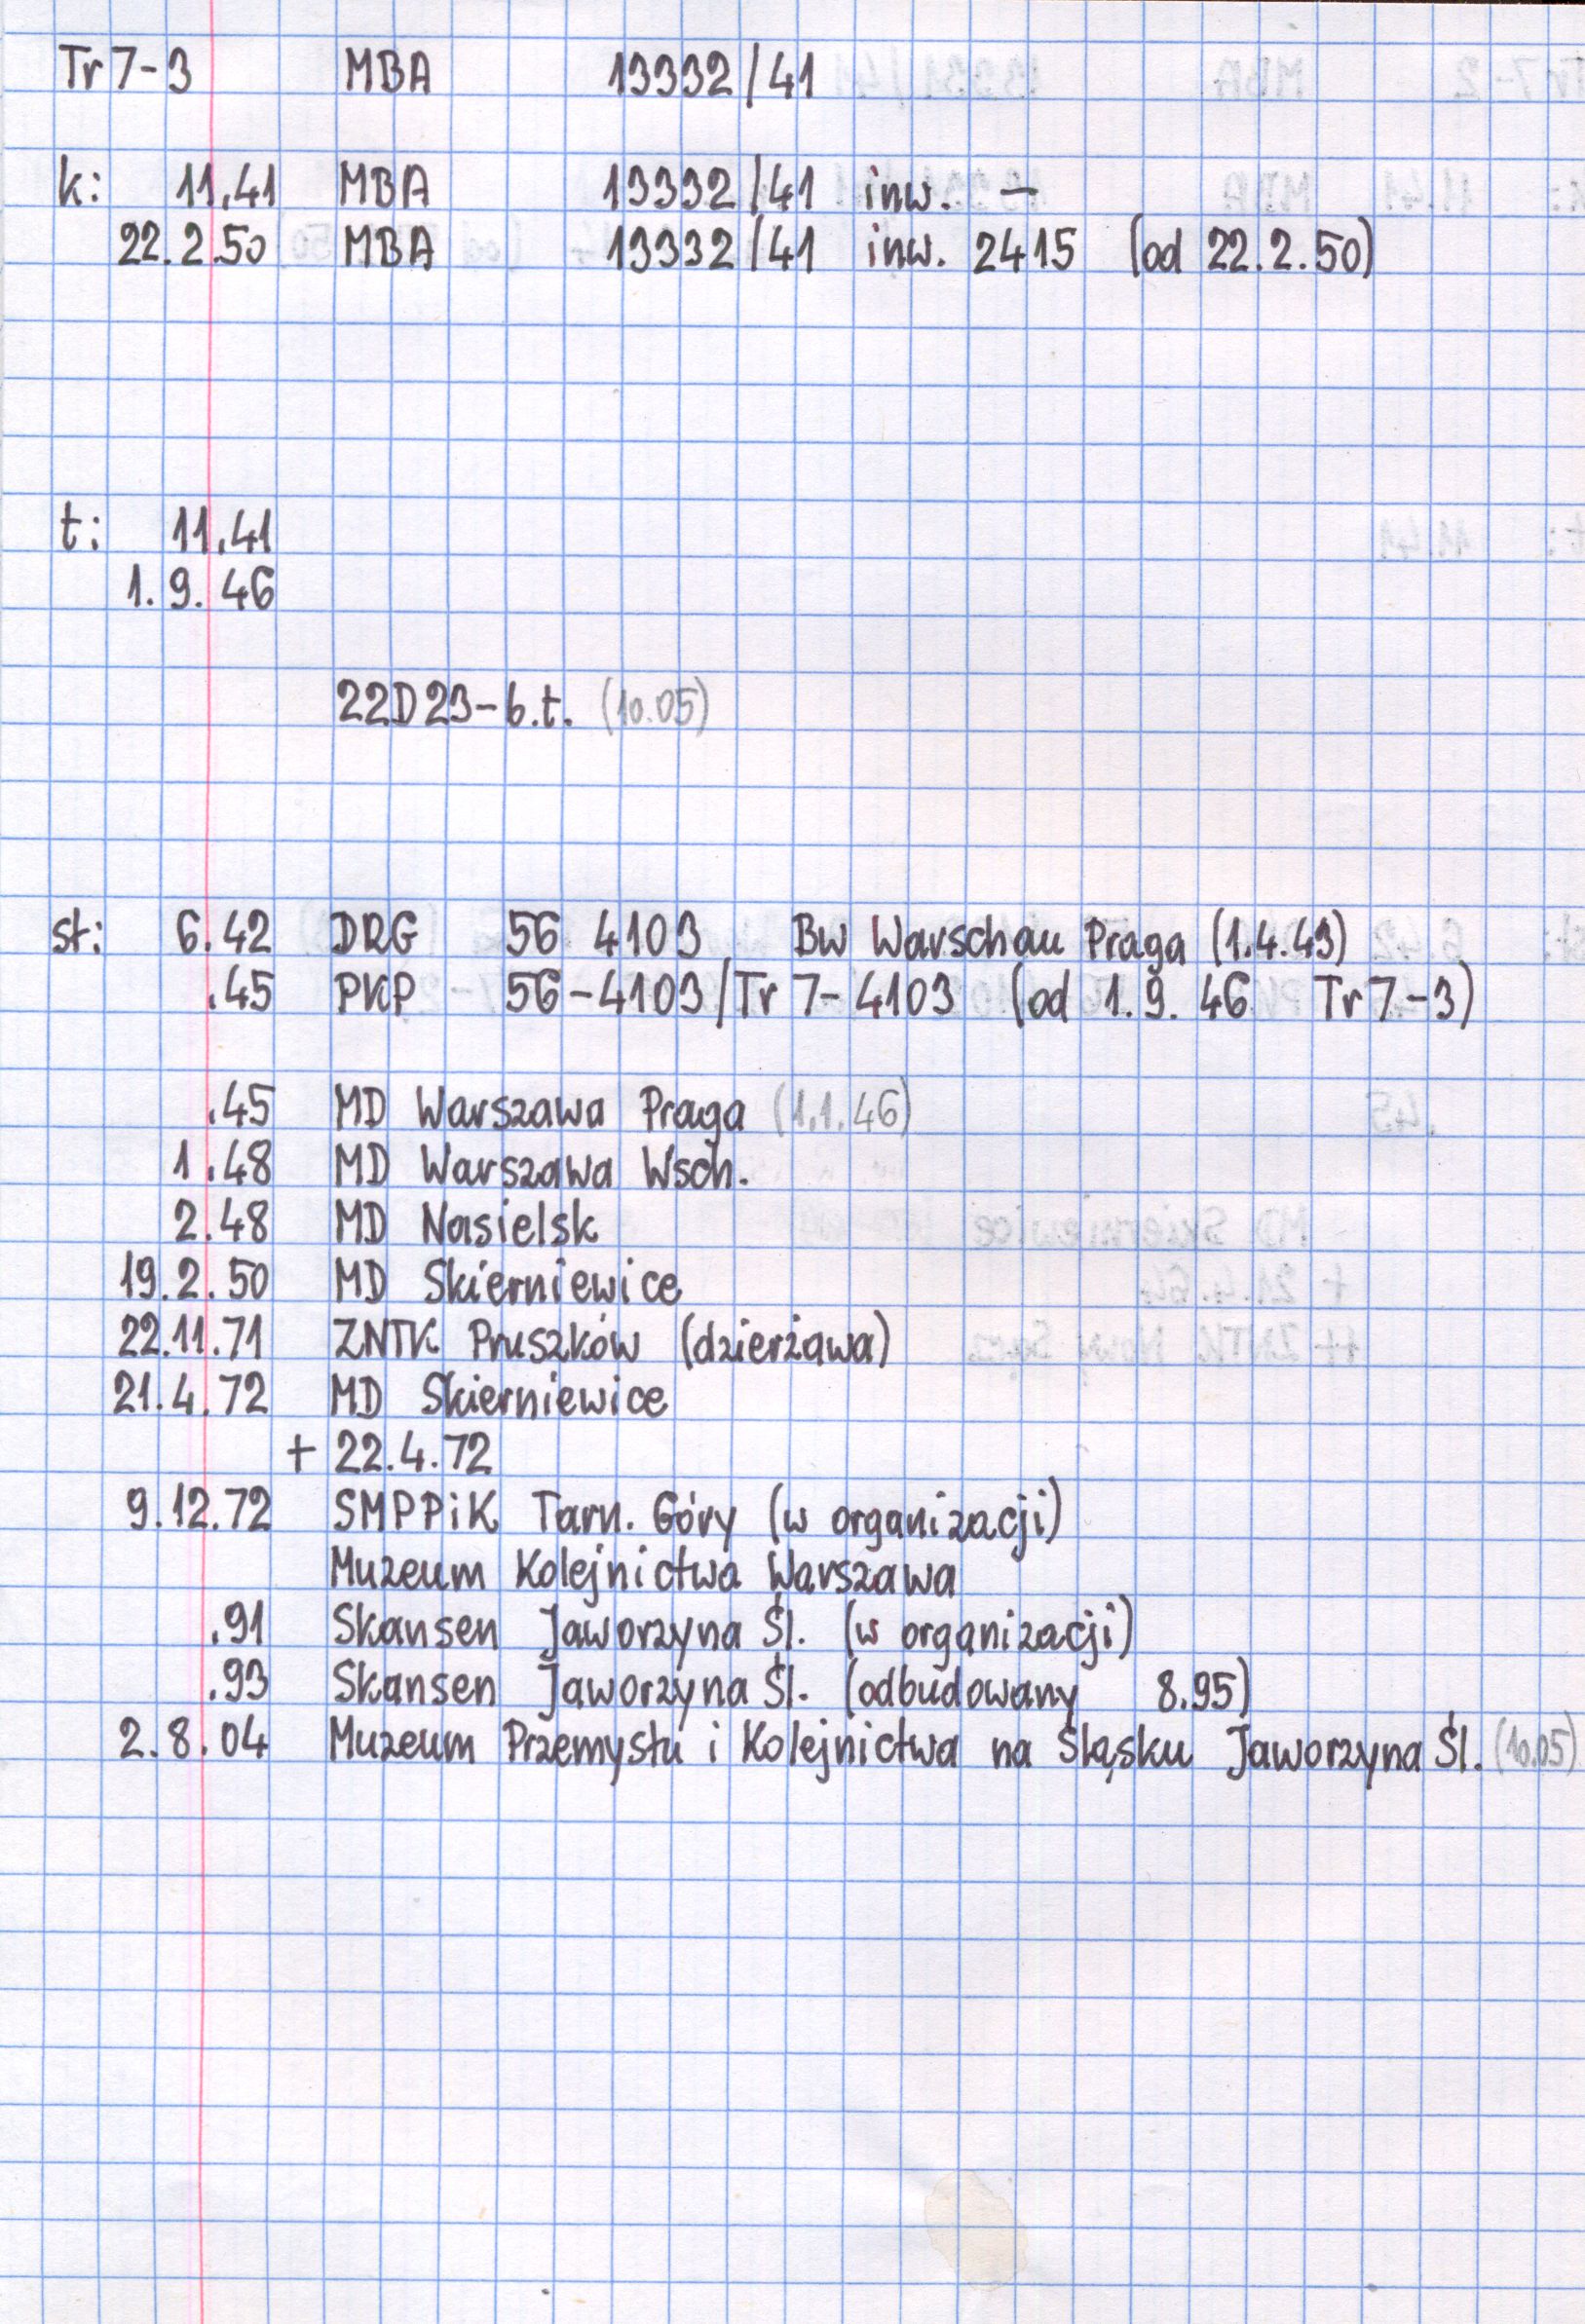 Tr 7-3 MBA 13332/41
k: 11.41 MBA 13332/41 inw. —
22.2.50 MBA 13332/41 inw. 2415 (od 22.2.50)
t: 11.41
1.9.46
22D23-b.t. (10.05)
st: 6.42 DRG 56 4103 Bw Warschau Praga (1.4.43)
.45 PKP 56-4103/Tr 7-4103 (od 1.9.46 Tr 7-3)
.45 MD Warszawa Praga (1.1.46)
1.48 MD Warszawa Wsch.
2.48 MD Nasielsk
19.2.50 MD Skierniewice
22.11.71 ZNTK Pruszków (dzierżawa)
21.4.72 MD Skierniewice
+ 22.4.72
9.12.72 SMPPiK Tarn. Góry (w organizacji)
Muzeum Kolejnictwa Warszawa
.91 Skansen Jaworzyna Śl. (w organizacji)
.93 Skansen Jaworzyna Śl. (odbudowany 8.95)
2.8.04 Muzeum Przemysłu i Kolejnictwa na Śląsku Jaworzyna Śl. (10.05)